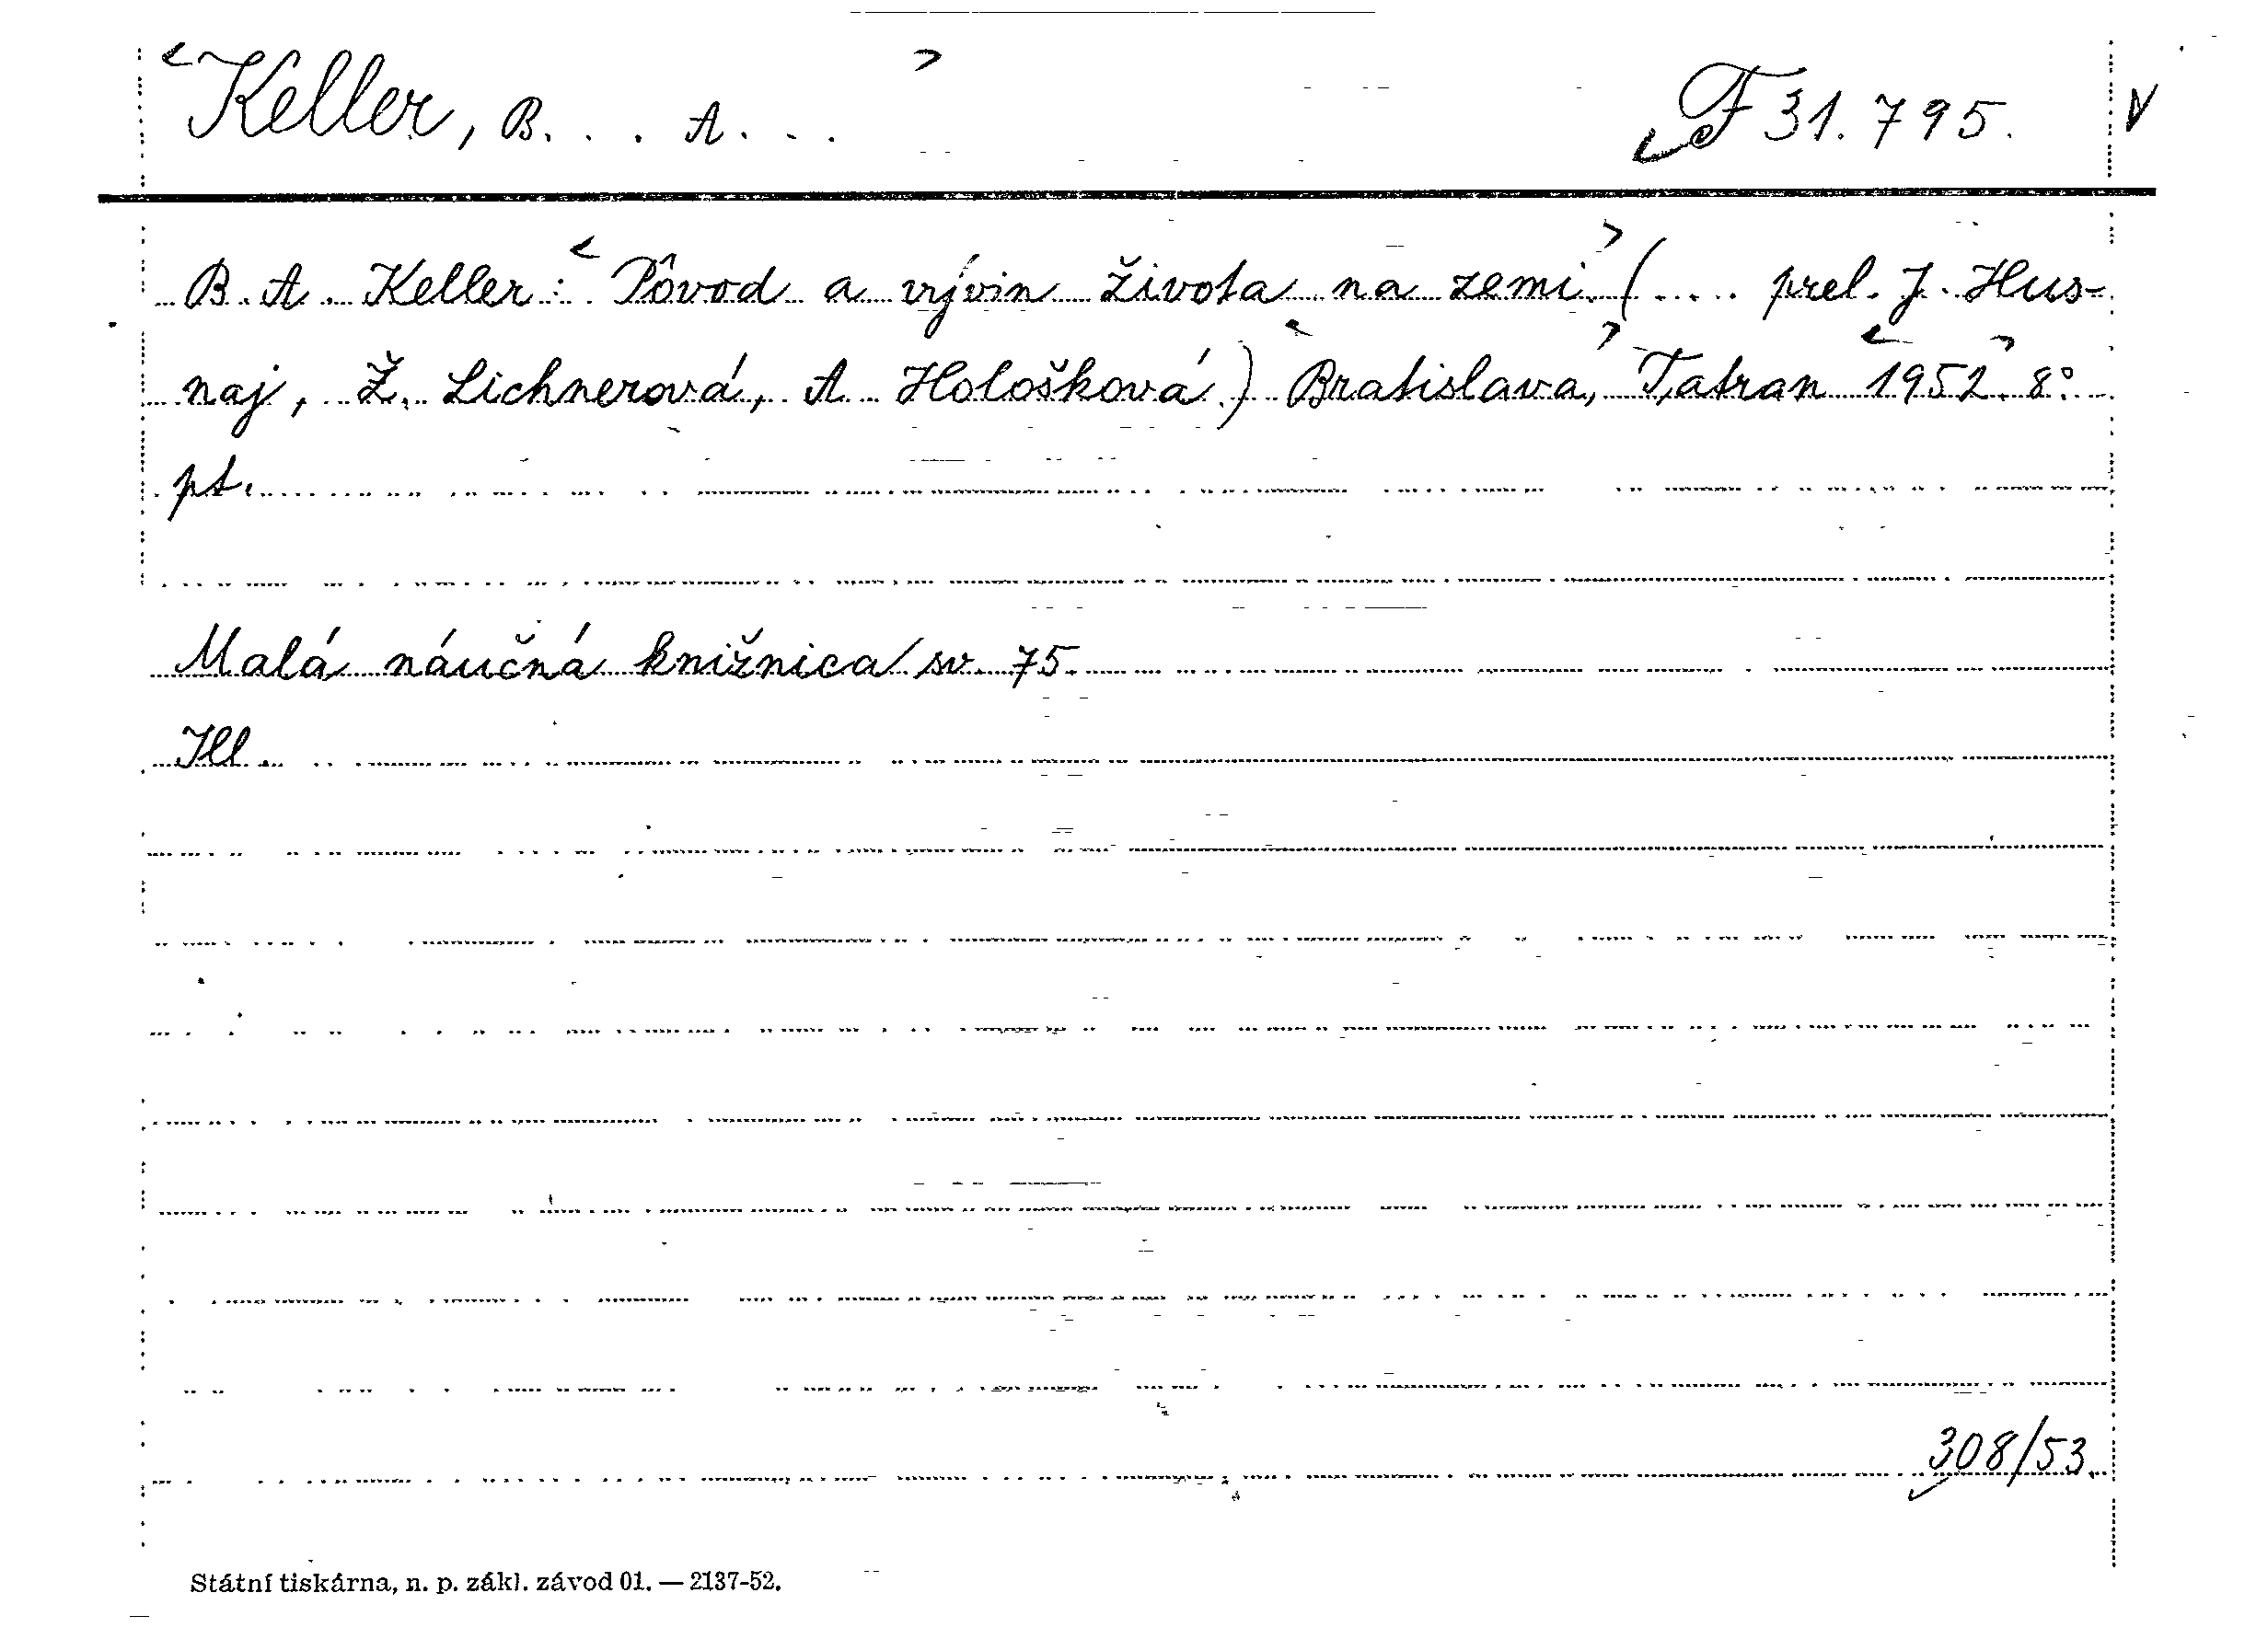 Keller, B. . . A. . . F 31.795. V
B. A. Keller: Pôvod a vývin života na zemi. (.... prel. J. Hus-
naj, Ž. Lichnerová, A Hološková.) Bratislava, Tatran 1952. 8°.
pt.
Malá náučná knižnica / sv. 75.
Ill.
308/53.
Státní tiskárna, n. p. zákl. závod 01. — 2137-52.